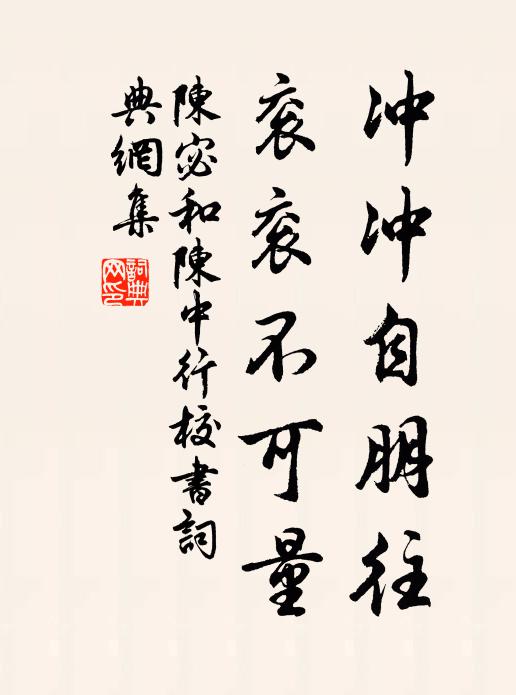 冲冲自朋往
衮衮不可量
陳宓和陳中行校書詞
典網集
詞典
网印